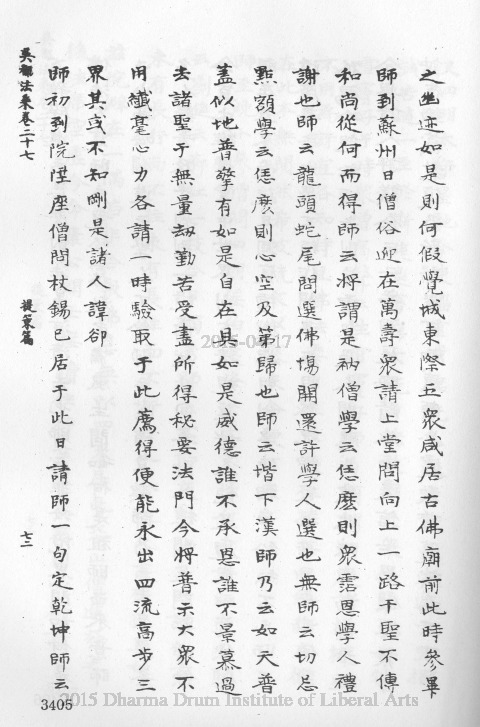 之坐迹如是則何假覺城東際五衆咸居古佛廟前此時參畢
師到蘇州日僧俗迎在萬壽衆請上堂問向上一路千聖不傳
和尚從何而得師云將謂是衲僧學云恁麽則衆霑恩學人禮
謝也師云龍頭蛇尾問選佛塲開還許學人選也無師云切忌
點額學云恁麽則心空及第歸也師云堦下漢師乃云如天普
盖似地普擎有如是自在具如是威德誰不承恩誰不景慕過
去諸聖于無量劫勤苦受盡所得秘要法門今將普示大衆不
用纎毫心力各請一時驗取于此薦得便能永出四流高步三
界其或不知剛是諸人諱卻
師初到院陞座僧問杖錫已居于此日請師一句定乾坤師云
吳都法乘卷二十七
提策篇
七二
3405
2015-04-17
2015 Dharma Drum Institute of Liberal Arts